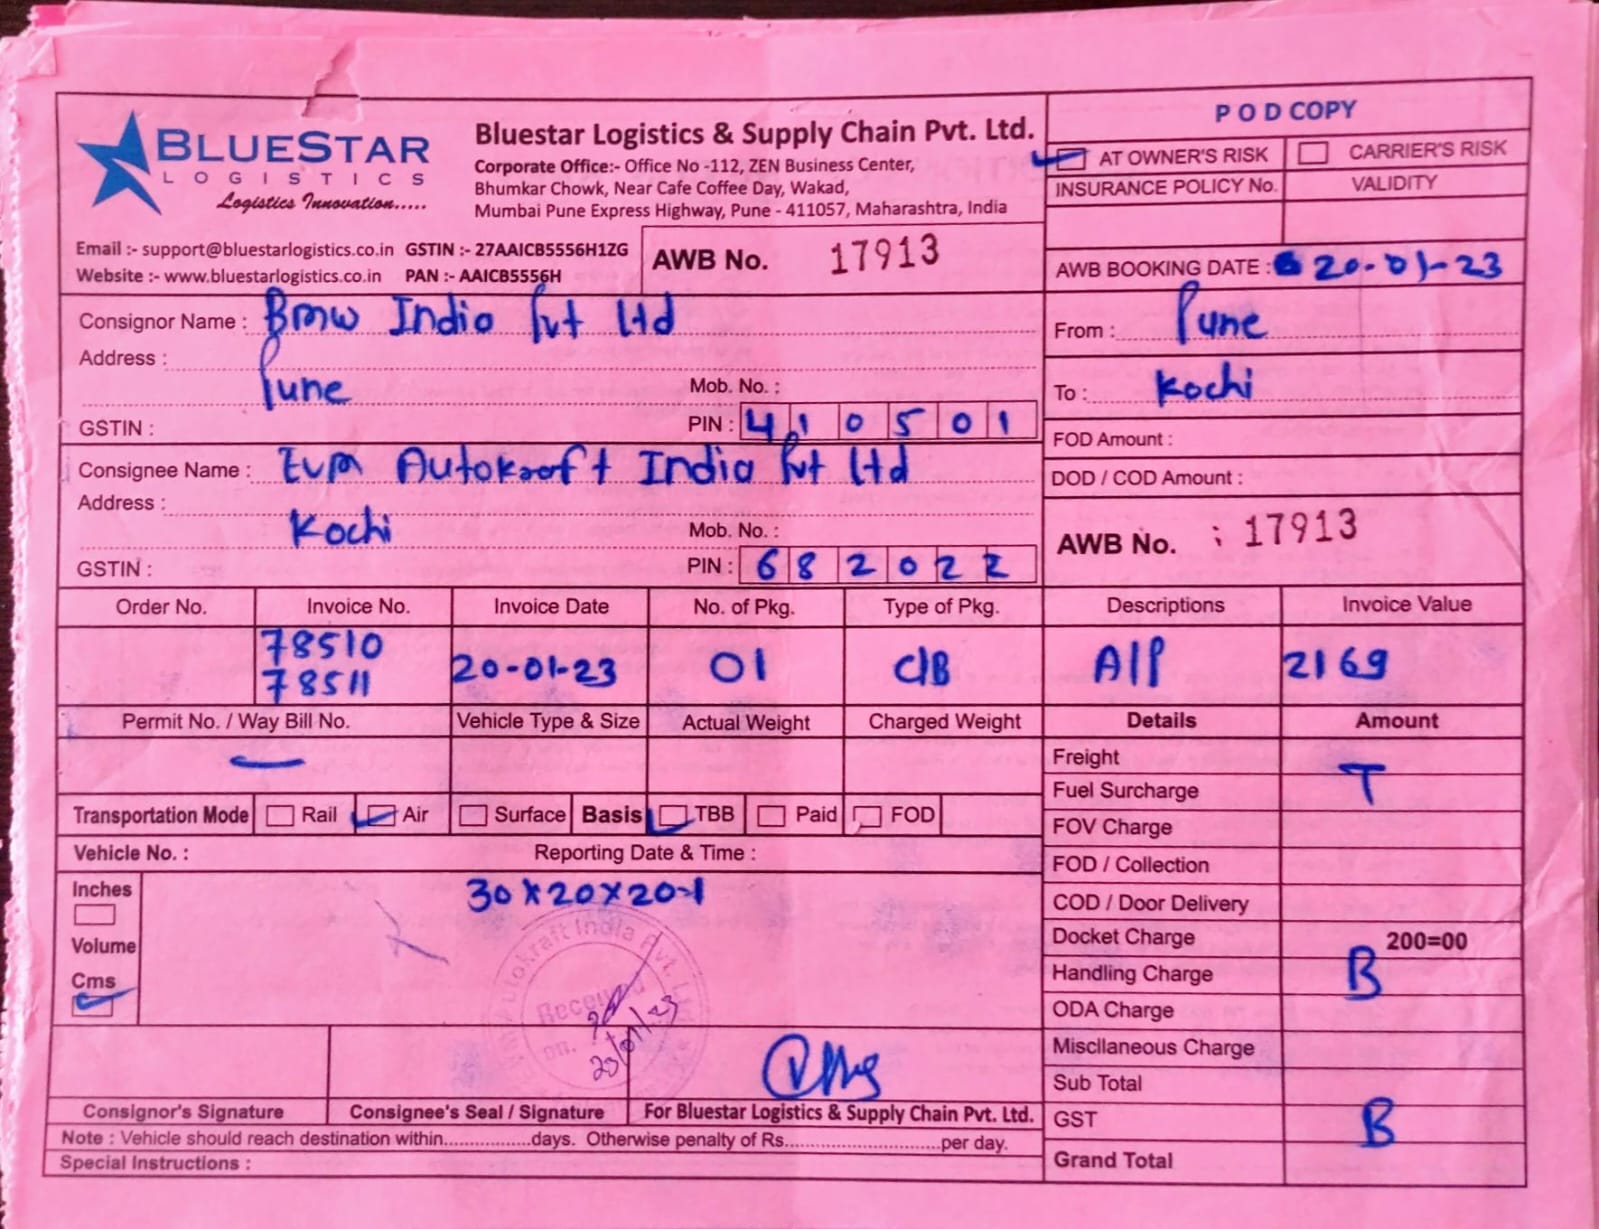 BLUESTAR
LOGISTICS
Logistics Innovation.....
Bluestar Logistics & Supply Chain Pvt. Ltd.
Corporate Office:- Office No -112, ZEN Business Center,
Bhumkar Chowk, Near Cafe Coffee Day, Wakad,
Mumbai Pune Express Highway, Pune - 411057, Maharashtra, India
POD COPY
AT OWNER'S RISK CARRIER'S RISK
INSURANCE POLICY No. VALIDITY
Email :- support@bluestarlogistics.co.in GSTIN :- 27AAICB5556H1ZG
Website :- www.bluestarlogistics.co.in PAN :- AAICB5556H
AWB No. 17913
AWB BOOKING DATE : 20-01-23
Consignor Name : Bmw India Pvt Ltd
Address :
Pune Mob. No. :
GSTIN : PIN : 410501
From : Pune
To : Kochi
FOD Amount :
DOD / COD Amount :
Consignee Name : Evm Autokraft India Pvt Ltd
Address :
Kochi Mob. No. :
GSTIN : PIN : 682022
AWB No. : 17913
Order No. Invoice No. Invoice Date No. of Pkg. Type of Pkg. Descriptions Invoice Value
78510
78511 20-01-23 01 C/B A/P 2169
Permit No. / Way Bill No. Vehicle Type & Size Actual Weight Charged Weight Details Amount
Freight
Fuel Surcharge T
FOV Charge
FOD / Collection
COD / Door Delivery
Docket Charge 200=00
Handling Charge B
ODA Charge
Miscllaneous Charge
Sub Total
GST B
Grand Total
Transportation Mode Rail Air Surface Basis TBB Paid FOD
Vehicle No. : Reporting Date & Time :
Inches 30x20x20-1
Volume
Cms
Autokraft India Pvt. Ltd
Received
on.
Consignor's Signature Consignee's Seal / Signature For Bluestar Logistics & Supply Chain Pvt. Ltd.
Note : Vehicle should reach destination within................days. Otherwise penalty of Rs............................per day.
Special Instructions :